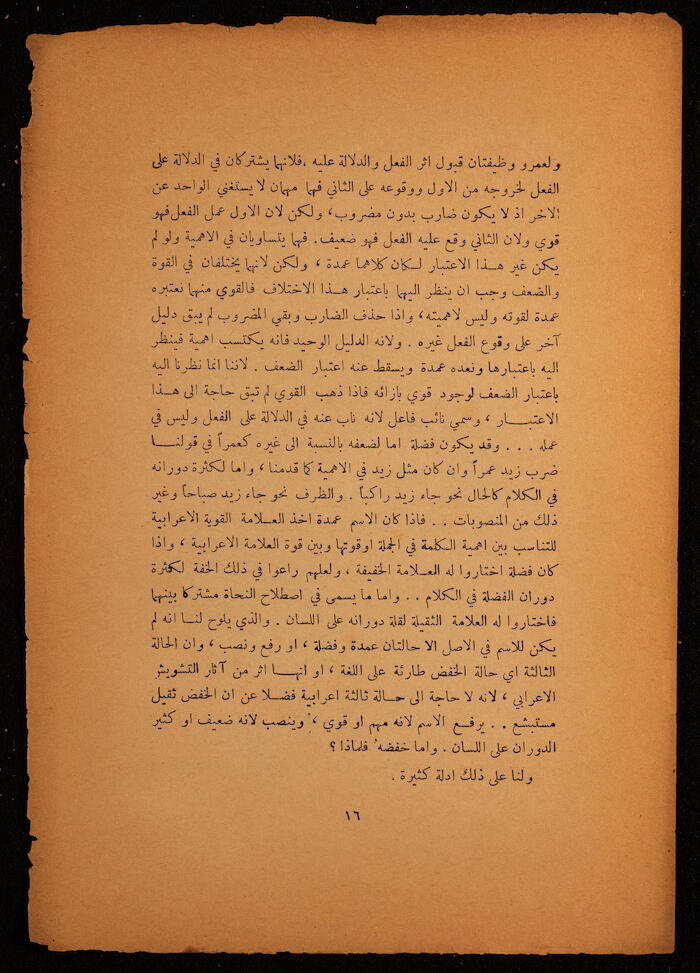 ولعمرو وظيفتان قبول اثر الفعل والدلالة عليه ،فلانهما يشتركان في الدلالة على
الفعل لخروجه من الاول ووقوعه على الثاني فهما مهمان لا يستغني الواحد عن
الاخر اذ لا يكون ضارب بدون مضروب، ولكن لان الاول عمل الفعل فهو
قوي ولان الثاني وقع عليه الفعل فهو ضعيف. فهما يتساويان في الاهمية ولو لم
يكن غير هـذا الاعتبار لـكان كلاهما عمدة ، ولكن لانهما يختلفان في القوة
والضعف وجب ان ينظر اليهما باعتبار هـذا الاختلاف فالقوي منهما نعتبره
عمدة لقوته وليس لاهميته، واذا حذف الضارب وبقي المضروب لم يبق دليل
آخر على وقوع الفعل غيره . ولانه الدليل الوحيد فانه يكتسب اهمية فينظر
اليه باعتبارها ونعده عمدة ويسقط عنه اعتبار الضعف . لاننا انما نظرنا اليه
باعتبار الضعف لوجود قوي بازائه فاذا ذهب القوي لم تبق حاجة الى هـذا
الاعتبـــار ، وسمي نائب فاعل لانه ناب عنه في الدلالة على الفعل وليس في
عمله . . . وقد يكون فضلة اما لضعفه بالنسبة الى غيره كعمراً في قولنـا
ضرب زيد عمراً وان كان مثل زيد في الاهمية كما قدمنا ، واما لكثرة دورانه
في الكلام كالحال نحو جاء زيد راكباً . والظرف نحو جاء زيد صباحاً وغير
ذلك من المنصوبات . . فاذا كان الاسم عمدة اخذ العـلامة القوية الاعرابية
للتناسب بين اهمية الـكلمة في الجملة اوقوتها وبين قوة العلامة الاعرابية ، واذا
كان فضلة اختاروا له العـلامة الخفيفة ، ولعلهم راعوا في ذلك الخفة لكثرة
دوران الفضلة في الكلام . . واما ما يسمى في اصطلاح النحاة مشتركا بينهما
فاختاروا له العلامة الثقيلة لقلة دورانه على اللسان . والذي يلوح لنـا انه لم
يكن للاسم في الاصل الا حالتان عمدة وفضلة ، او رفع ونصب ، وان الحالة
الثالثة اي حالة الخفض طارئة على اللغة ، او انهـا اثر من آثار التشويش
الاعرابي ، لانه لا حاجة الى حـالة ثالثة اعرابية فضـلا عن ان الخفض ثقيل
مستبشع . . يرفـع الاسم لانه مهم او قوي ، وينصب لانه ضعيف او كثير
الدوران على اللسان . واما خفضه فلماذا ؟
ولنا على ذلك ادلة كثيرة .
١٦